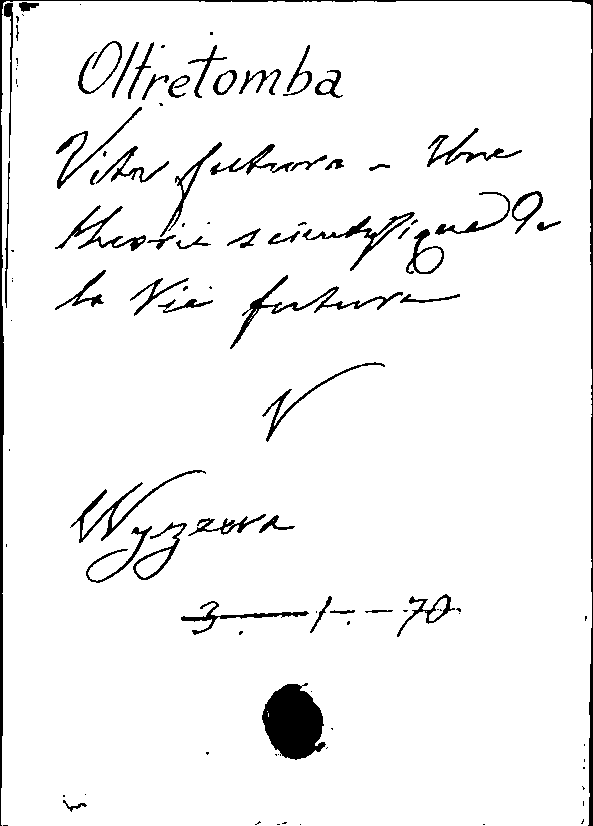 Oltretomba
Vita futura - Une
theorie scientifique de
la Vie future
V
Wyzewa
3 - 1 - 70